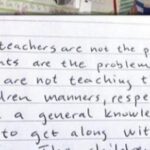 teachers are not the p
nts are the problem
are not teaching t
dren manners, respe
a general knowle
to get along wit